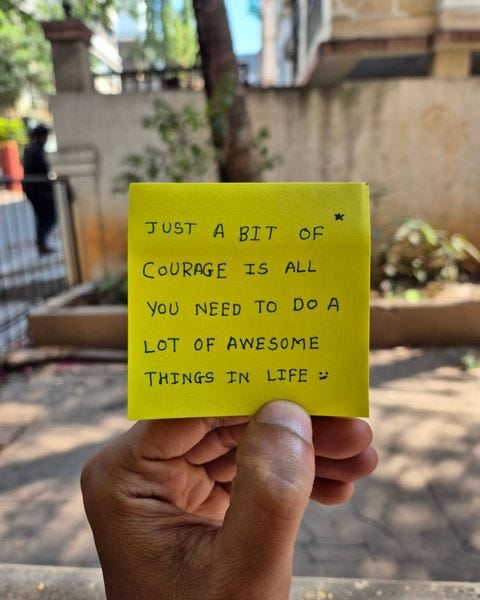 JUST A BIT OF *
COURAGE IS ALL
YOU NEED TO DO A
LOT OF AWESOME
THINGS IN LIFE :)